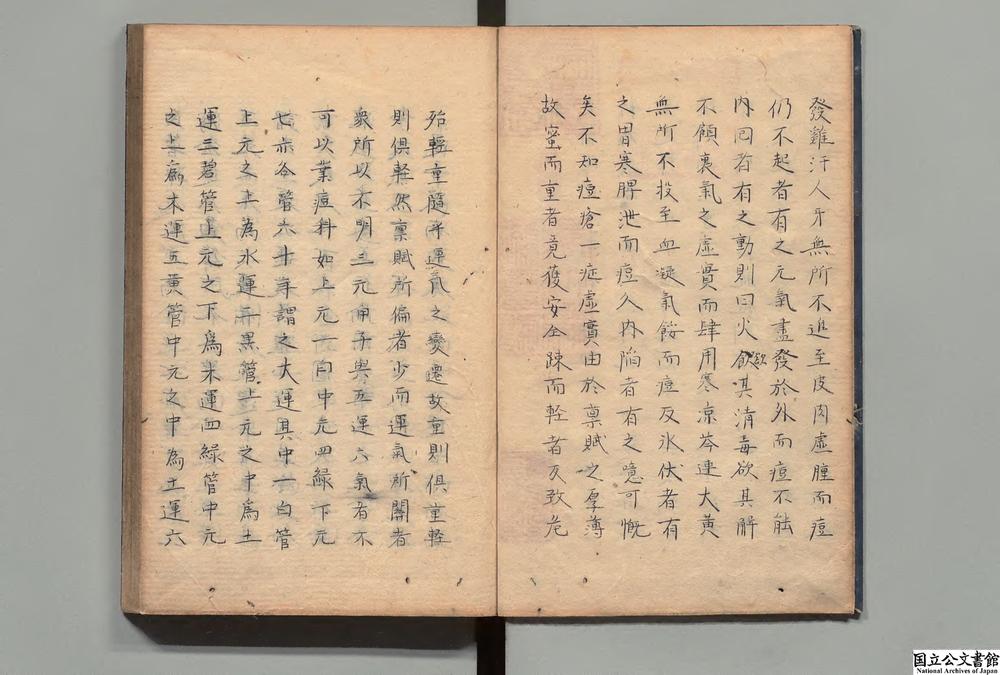 發雞汗人牙無所不進至皮肉虛腫而痘
仍不起者有之元氣盡發於外而痘不能
內回者有之動則曰火飲欲其清毒欲其解
不顧裏氣之虛實而肆用寒凉芩連大黃
無所不投至血凝氣餒而痘反氷伏者有
之胃寒脾泄而痘入內陷者有之噫可慨
矣不知痘瘡一症虛實由於禀賦之厚薄
故蜜而重者竟獲安全踈而軽者反致危
殆輕重隨乎運氣之變遷故重則俱重輕
則俱軽然禀賦所偏者少而運氣所關者
衆所以不明三元甲子與五運六氣者不
可以業痘科如上元一白中元四綠下元
七赤各管六十年謂之大運其中一白管
上元之上為水運二黑管上元之中為土
運三碧管上元之下為木運四綠管中元
之上為木運五黃管中元之中為土運六
国立公文書館
National Archives of Japan